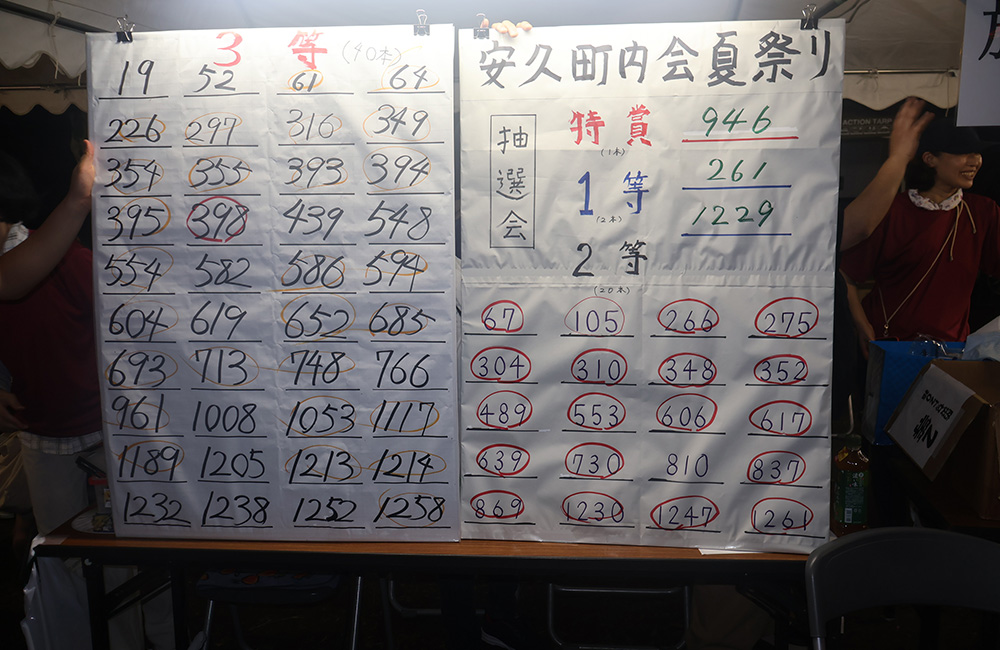 3等 (40本)
19 52 61 64
226 297 316 349
354 355 393 394
395 398 439 548
554 582 586 594
604 619 652 685
693 713 748 766
961 1008 1053 1117
1189 1205 1213 1214
1232 1238 1252 1258
安久町内会夏祭り
抽選会
特賞 946
(1本)
1等 261
(2本) 1229
2等
(20本)
67 105 266 275
304 310 348 352
489 553 606 617
639 730 810 837
869 1230 1247 1261